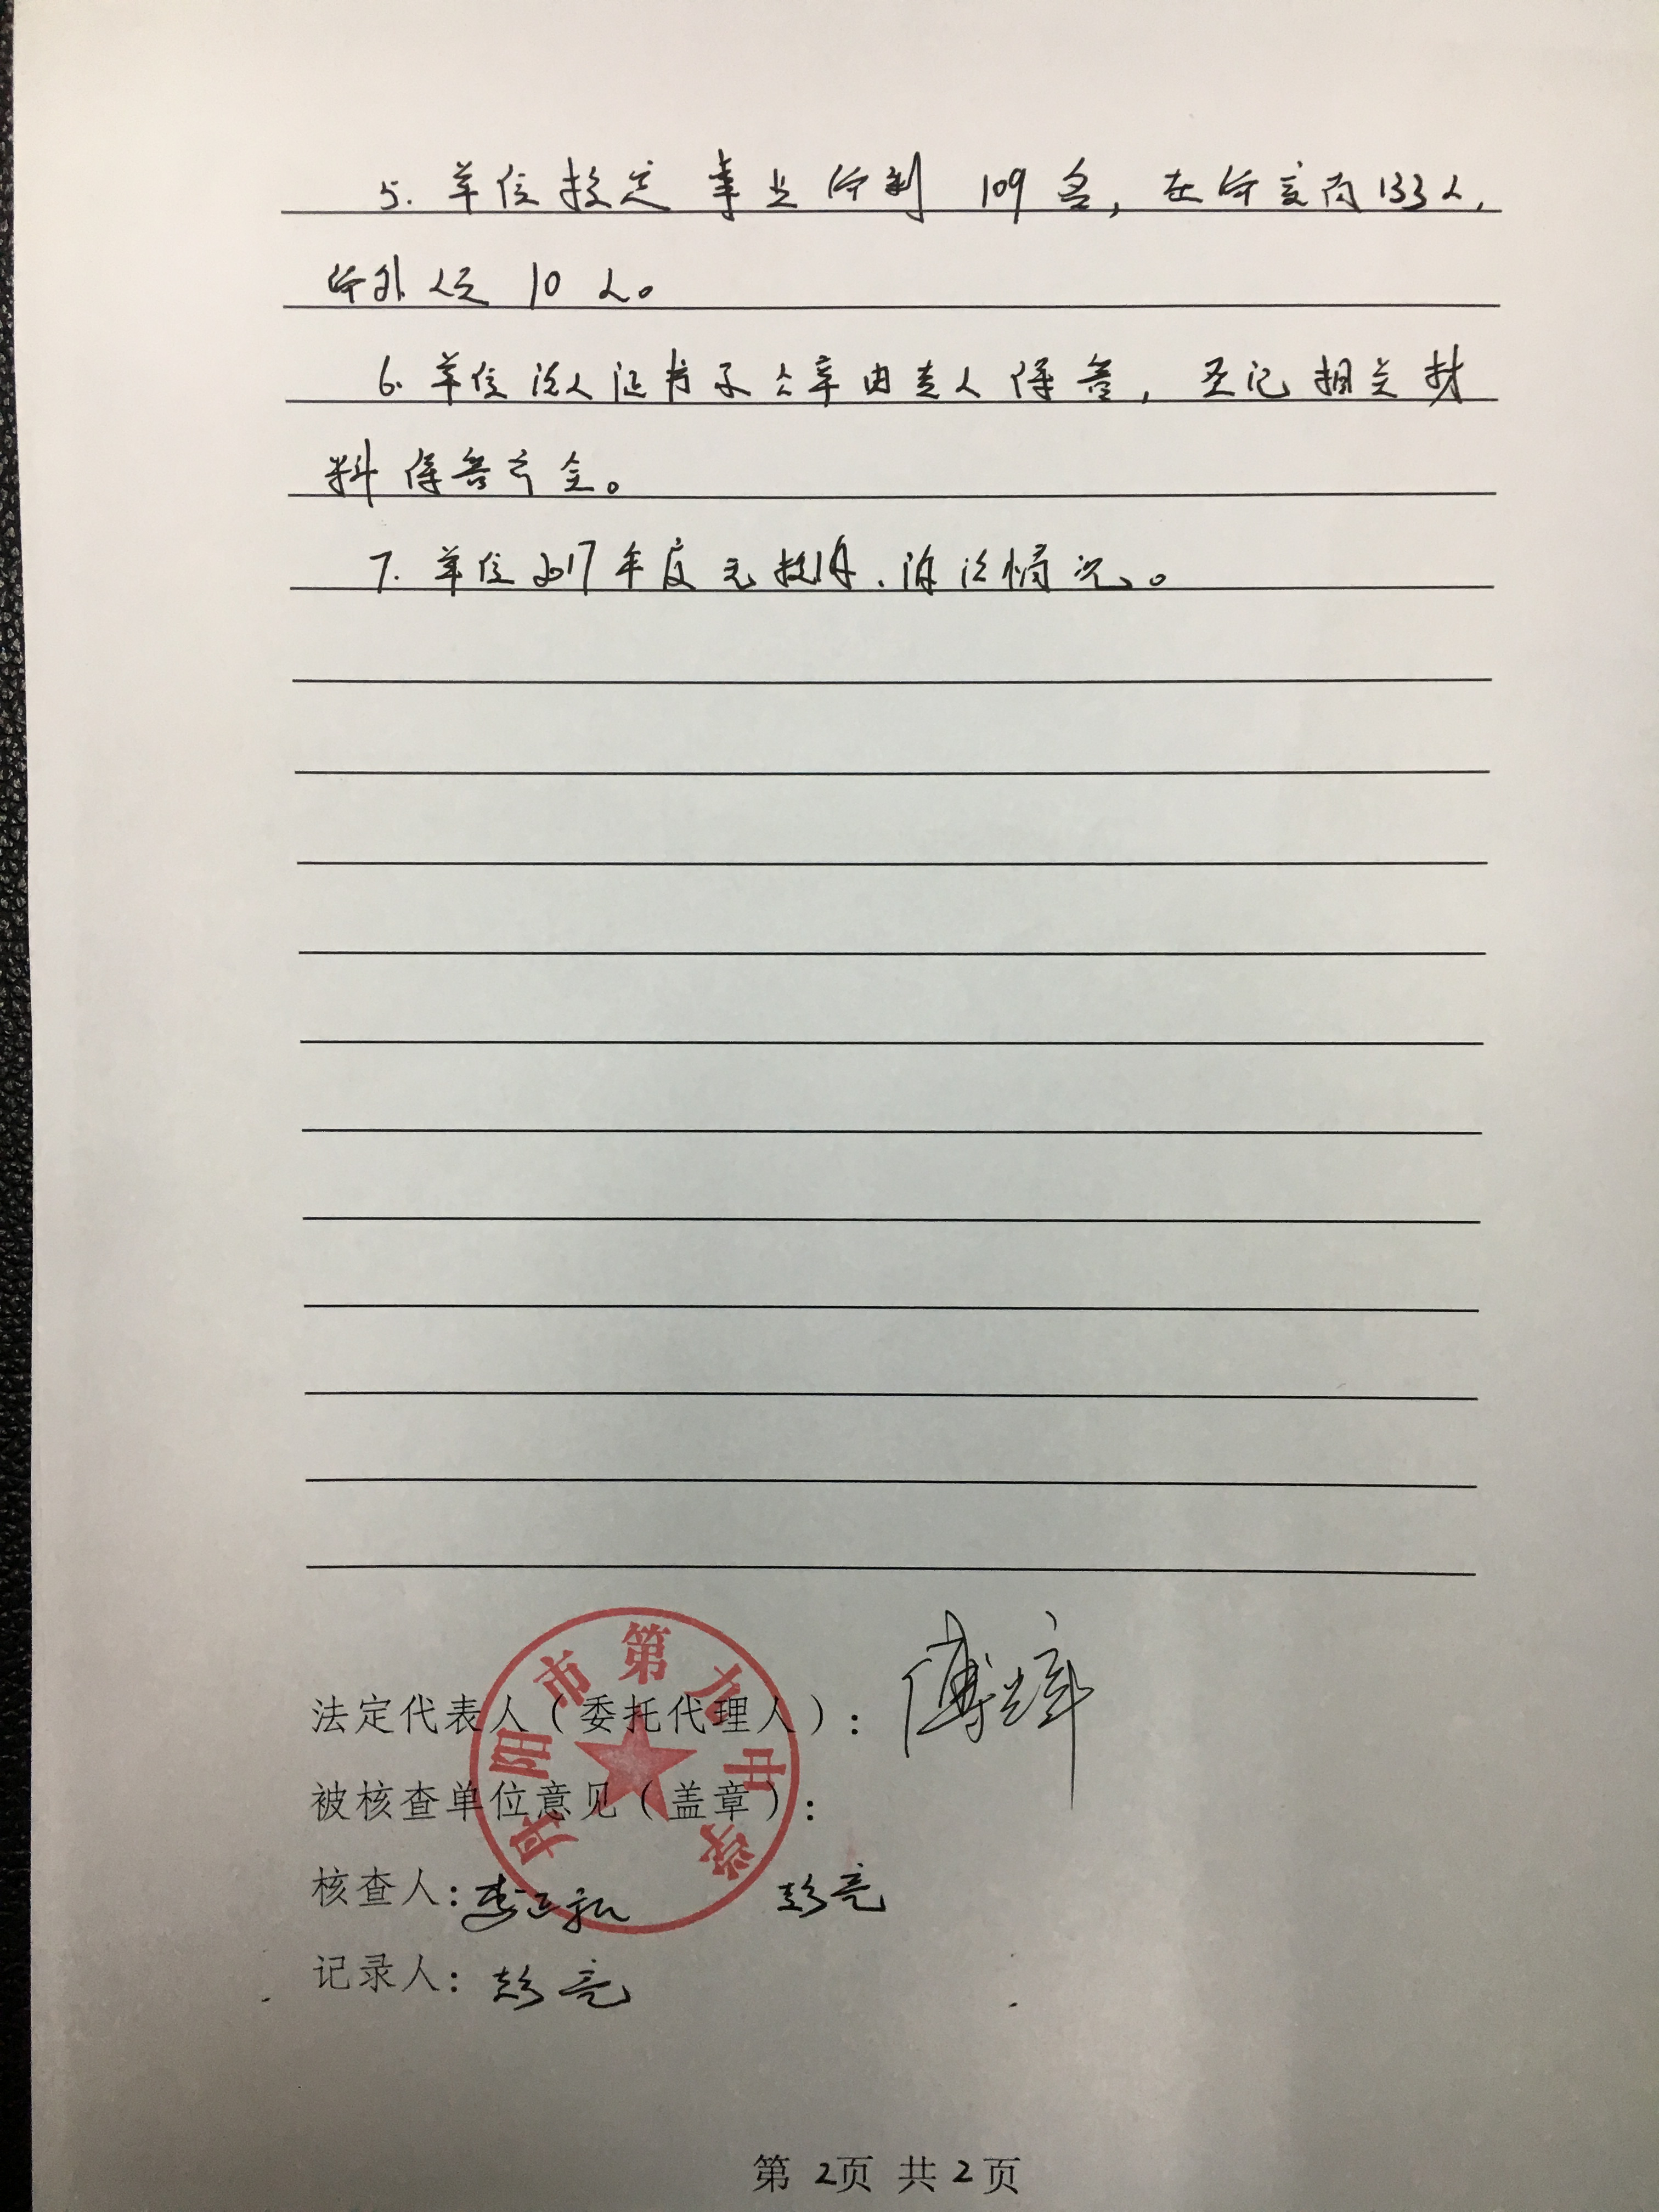 5. 单位核定事业编制 109名, 在编在岗133人,
编外人员 10人。
6. 单位法人证书及公章由专人保管, 登记相关材
料保管齐全。
7. 单位2017年度无投诉、诉讼情况。
丹阳市第九中学
法定代表人(委托代理人):
被核查单位意见(盖章):
核查人: 彭亮
记录人: 彭亮
第 2页 共 2 页